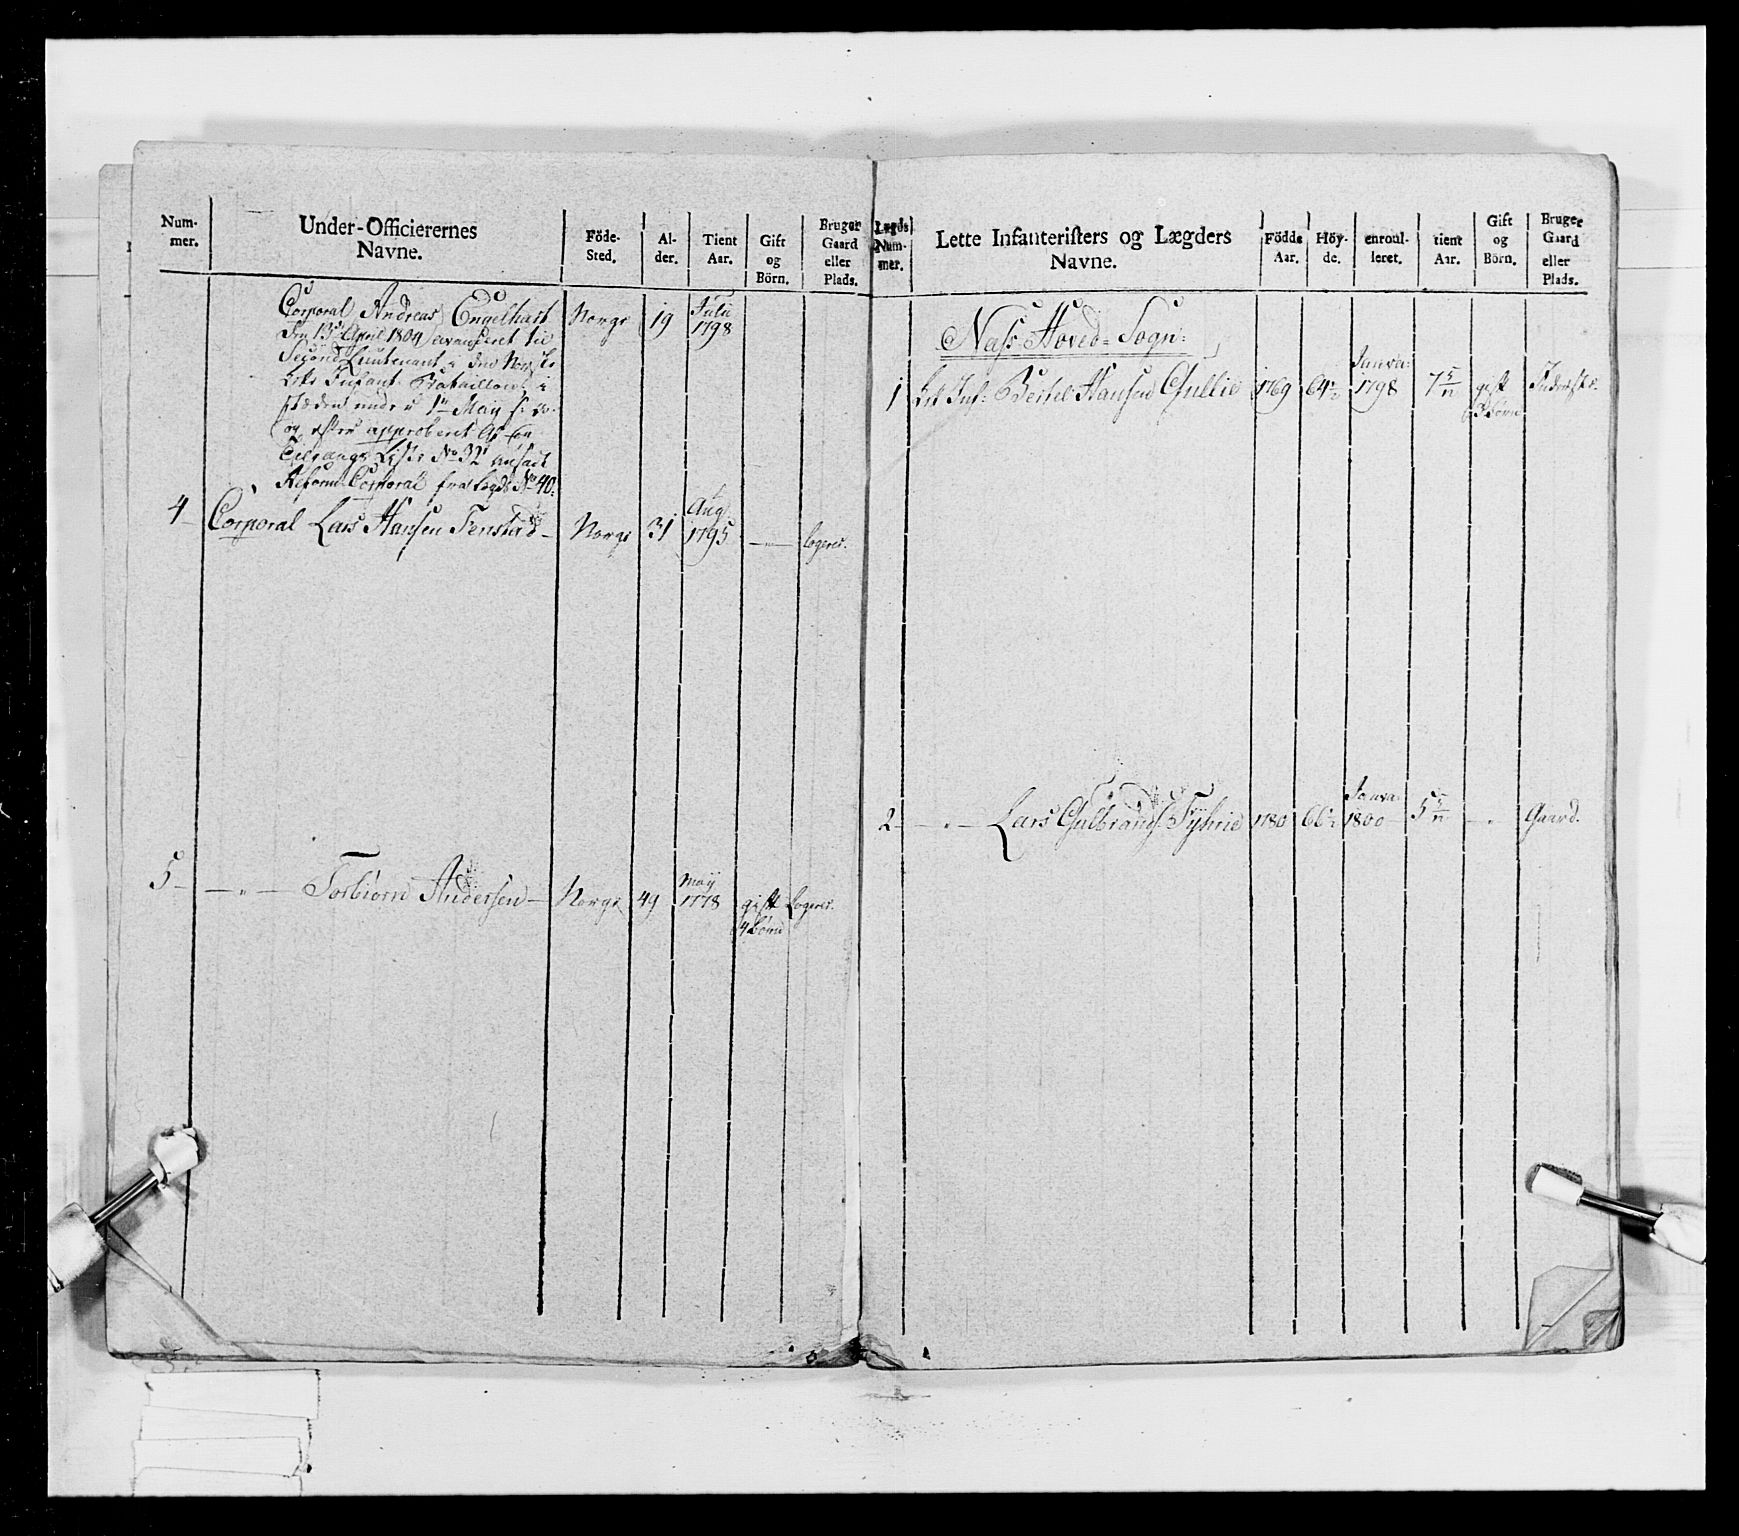 Num-
mer.
Under-Officierernes
Navne.
Föde-
Sted.
Al-
der.
Tient
Aar.
Gift
og
Börn.
Bruger
Gaard
eller
Plads.
Corporal Andreas Engelhart Norge 19 Julii 1798
den 13de April 1804 avanceret til
Second Lieutenant i den Norske
Infant. Bataillon
under 1te May
og efter approberet Af- og
Tilgangs Liste No 32 ansadt
Reform: Corporal fra Legd No 40:
4 Corporal Lars Hansen Fenstad Norge 31 Aug 1795 — Logerer.
5 — " — Torbiörn Andersen — Norge 49 May 1778 gift Logerer.
4 Börn
Legds
Num-
mer.
Lette Infanteristers og Lægders
Navne.
Födde
Aar.
Höy-
de.
enroul-
leret.
tient
Aar.
Gift
og
Börn.
Bruger
Gaard
eller
Plads.
Næss Hoved-Sogn:
1 Let Inf: Bertel Hansen Gullie 1769 64 Janva: 1798 7 gift Inderst
3 Börn
2 — " — Lars Gulbrands: 1780 66 Janva: 1800 5 — " Gaard.